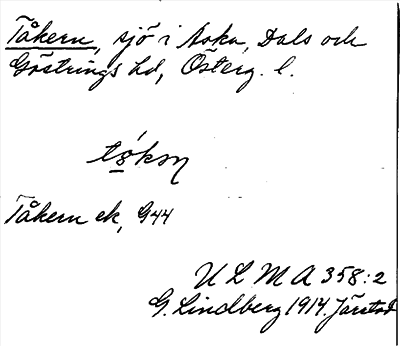 Tåkern, sjö i Aska, Dals och
Göstrings hd, Österg. l.
Tåkern ek, G44
ULMA 358:2
G. Lindberg 1914. Järstad